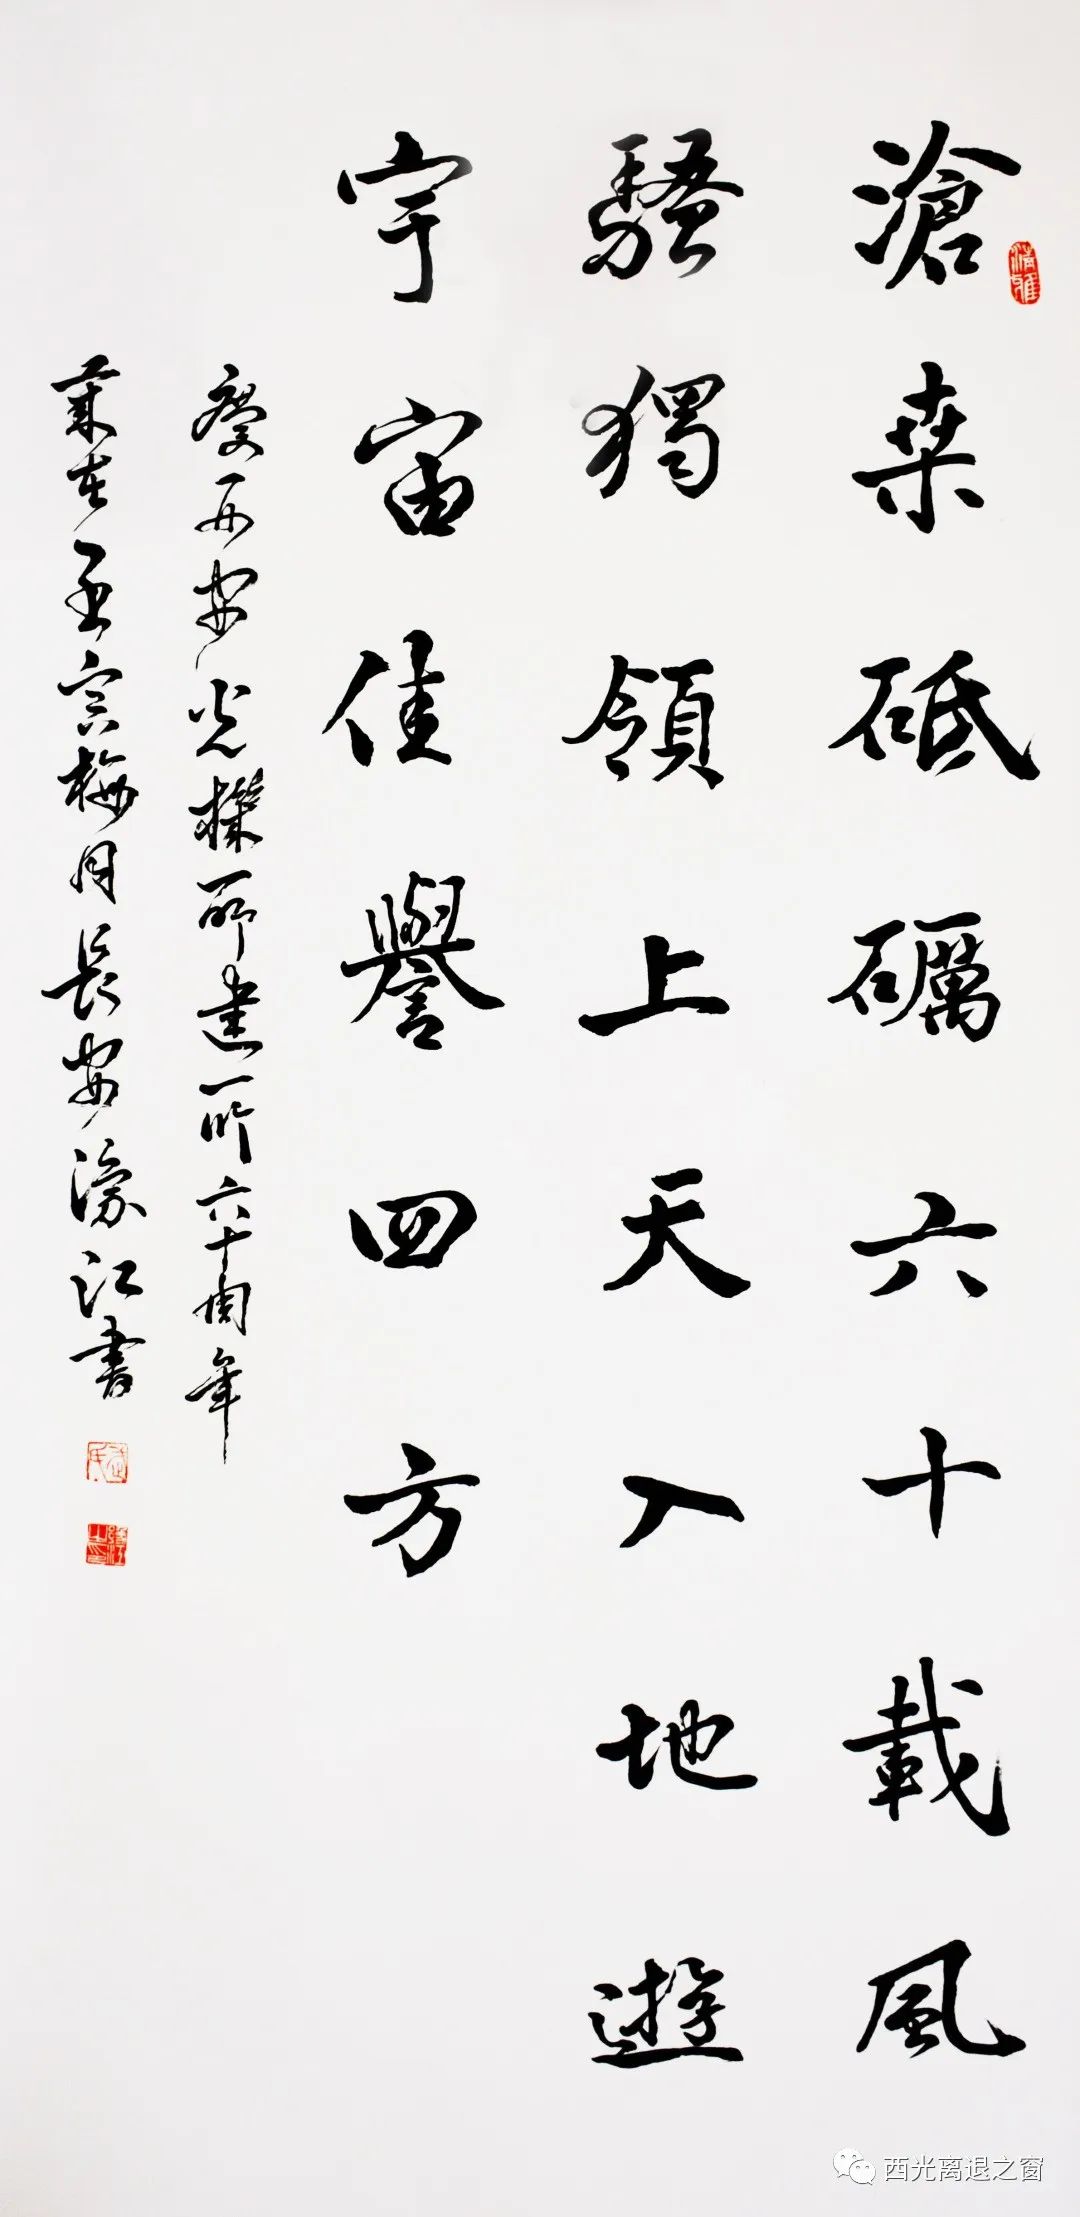 滄桑砥礪六十載風
騷獨領上天入地遊
宇宙佳譽四方
慶西安光機所建所六十周年
歲在壬寅梅月長安濠江書
清雅
西光离退之窗